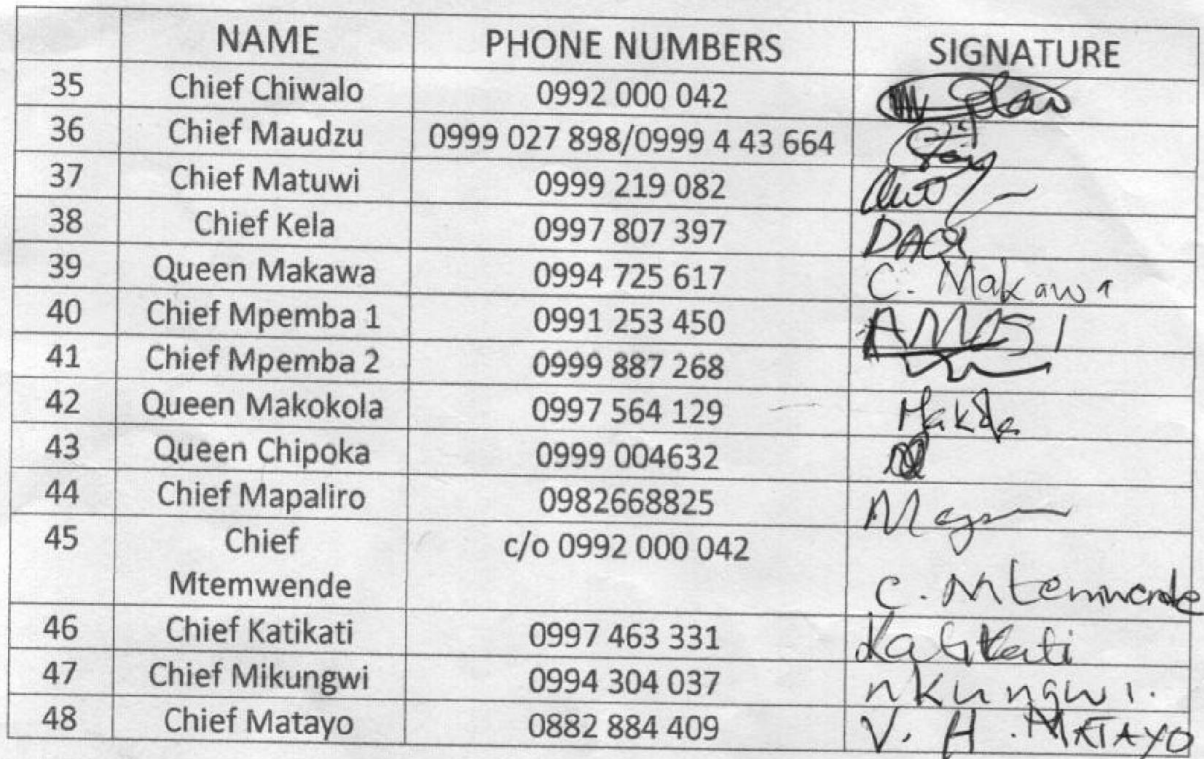 NAME PHONE NUMBERS SIGNATURE
35 Chief Chiwalo 0992 000 042
36 Chief Maudzu 0999 027 898/0999 4 43 664
37 Chief Matuwi 0999 219 082
38 Chief Kela 0997 807 397
39 Queen Makawa 0994 725 617 C. Makawa
40 Chief Mpemba 1 0991 253 450 AMOSI
41 Chief Mpemba 2 0999 887 268
42 Queen Makokola 0997 564 129
43 Queen Chipoka 0999 004632
44 Chief Mapaliro 0982668825
45 Chief c/o 0992 000 042
Mtemwende C. Mtemwende
46 Chief Katikati 0997 463 331 Katikati
47 Chief Mikungwi 0994 304 037 nkungwi.
48 Chief Matayo 0882 884 409 V. H. MATAYO